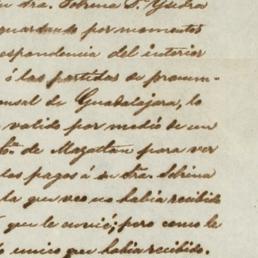 su Sra. Sobrina Da. Ysidra
guardando por momentos
respondencia del interior
ó las partidas de procum-
onsal de Guadalajara, lo
valido por medio de un
de Mazatlan para ver
los pagos á su Sra. Sobrina
la que veo no había recibido
que le envié; pero como le
lo unico que había recibido.